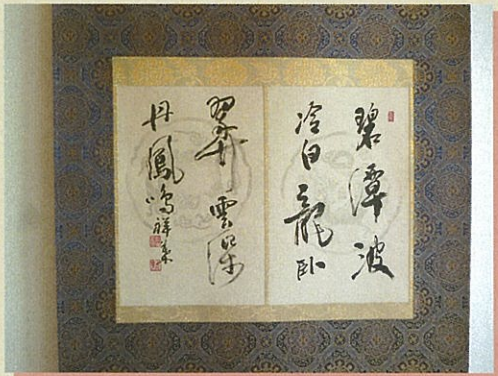 碧潭波
冷白龍卧
翠竹雲深
丹鳳鳴
祥